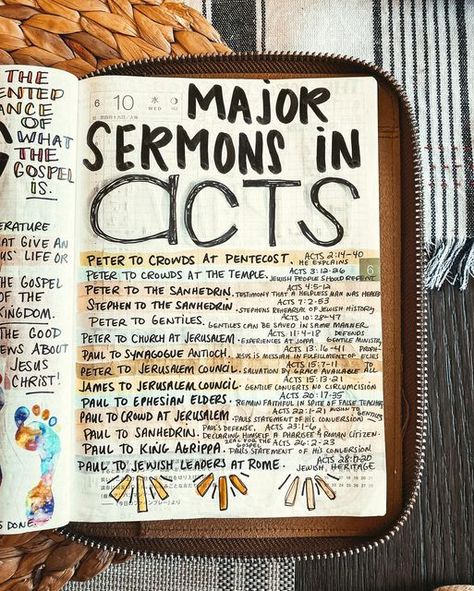 THE
ENTED
ANCE
OF
WHAT
THE
GOSPEL
IS.
ERATURE
AT GIVE AN
US' LIFE OR
THE GOSPEL
OF THE
KINGDOM.
THE GOOD
EWS ABOUT
JESUS
CHRIST!
S DONE.
6 10 水 WED
MAJOR
SERMONS IN
ACTS
PETER TO CROWDS AT PENTECOST. HE EXPLAINS ACTS 2:14-40
PETER TO CROWDS AT THE TEMPLE. JEWISH PEOPLE SHOULD REPENT ACTS 3:12-26
6
PETER TO THE SANHEDRIN. TESTIMONY THAT A HELPLESS MAN WAS HEALED ACTS 4:5-12
STEPHEN TO THE SANHEDRIN. STEPHENS REHEARSAL OF JEWISH HISTORY ACTS 7:2-53
PETER TO GENTILES. GENTILES CAN BE SAVED IN SAME MANNER ACTS 10:28-47
PETER TO CHURCH AT JERUSALEM. EXPERIENCES AT JOPPA ACTS 11:4-18 DEFENDS GENTILE MINISTRY
PAUL TO SYNAGOGUE ANTIOCH. JESUS IS MESSIAH IN FULFILLMENT OF ACTS 13:16-41
PETER TO JERUSALEM COUNCIL. SALVATION BY GRACE AVAILABLE TO ALL ACTS 15:7-11
JAMES TO JERUSALEM COUNCIL. GENTILE CONVERTS NO CIRCUMCISION ACTS 15:13-21
PAUL TO EPHESIAN ELDERS. REMAIN FAITHFUL IN SPITE OF FALSE TEACHER ACTS 20:17-35
PAUL TO CROWD AT JERUSALEM. PAULS STATEMENT OF HIS CONVERSION ACTS 22:1-21 MISSION TO GENTILES
PAUL TO SANHEDRIN. PAUL'S DEFENSE, DECLARING HIMSELF A PHARISEE & ROMAN CITIZEN ACTS 23:1-6
PAUL TO KING AGRIPPA. PAULS STATEMENT OF HIS CONVERSION ZEAL FOR THE GOSPEL ACTS 26:2-23
PAUL TO JEWISH LEADERS AT ROME. JEWISH HERITAGE ACTS 28:17-20